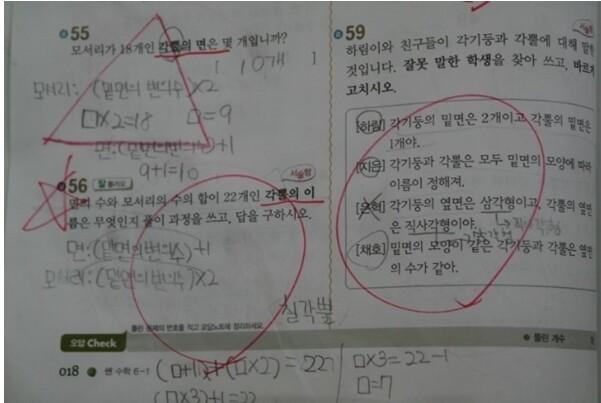 55
모서리가 18개인 각뿔의 면은 몇 개입니까?
[ 10개 ]
모서리: (밑면의 변의 수)×2
□×2=18 □=9
면:(밑면의 변의 수)+1
9+1=10
56 서술형
면의 수와 모서리의 수의 합이 22개인 각뿔의 이
름은 무엇인지 풀이 과정을 쓰고, 답을 구하시오.
면: (밑면의 변의 수)+1
모서리: (밑면의 변의 수)×2
칠각뿔
틀린 문제의 번호를 적고 오답노트에 정리하세요.
오답 Check
018 쎈 수학 6-1
(□+1)+(□×2)=22
(□×3)+1=22
□×3=22-1
□=7
59 서술형
하림이와 친구들이 각기둥과 각뿔에 대해 말한
것입니다. 잘못 말한 학생을 찾아 쓰고, 바르게
고치시오.
[하림] 각기둥의 밑면은 2개이고 각뿔의 밑면은
1개야.
[지은] 각기둥과 각뿔은 모두 밑면의 모양에 따라
이름이 정해져.
각기둥의 옆면은 삼각형이고, 각뿔의 옆면
은 직사각형이야. 직사각형
삼각형
[채호] 밑면의 모양이 같은 각기둥과 각뿔은 옆면
의 수가 같아.
틀린 개수